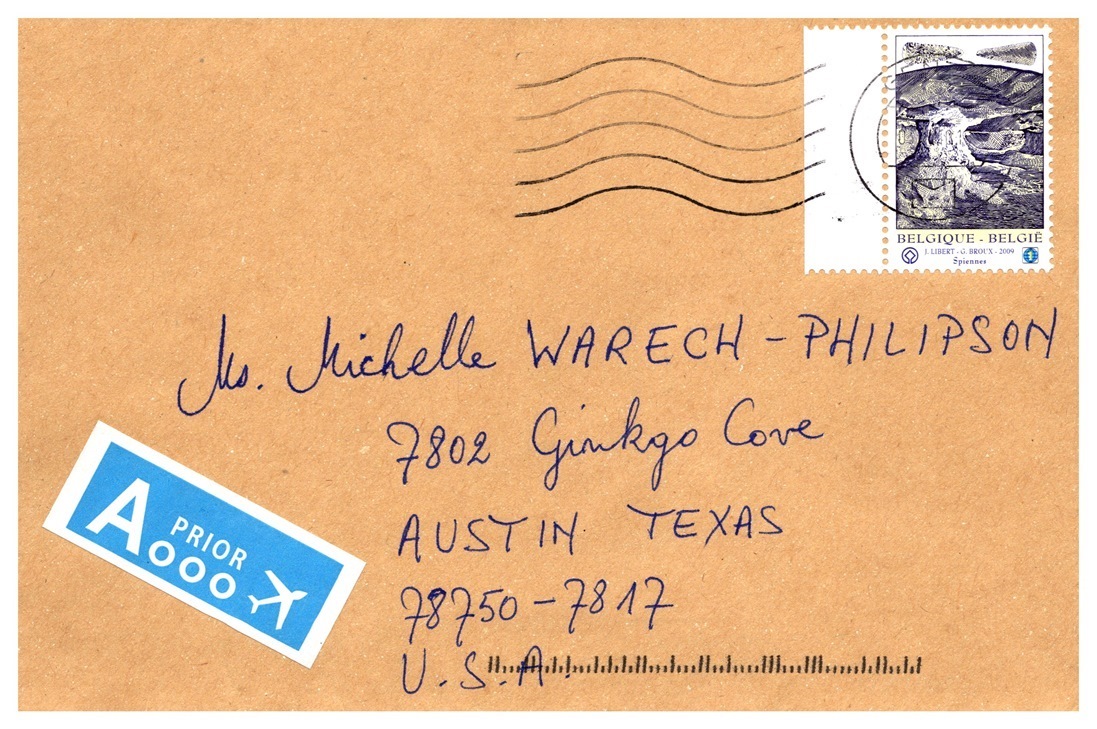 BELGIQUE - BELGIË
J. LIBERT - G. BROUX - 2009
Spiennes
Ms. Michelle WARECH - PHILIPSON
7802 Ginkgo Cove
AUSTIN TEXAS
78750 - 7817
U.S.A.
A PRIOR